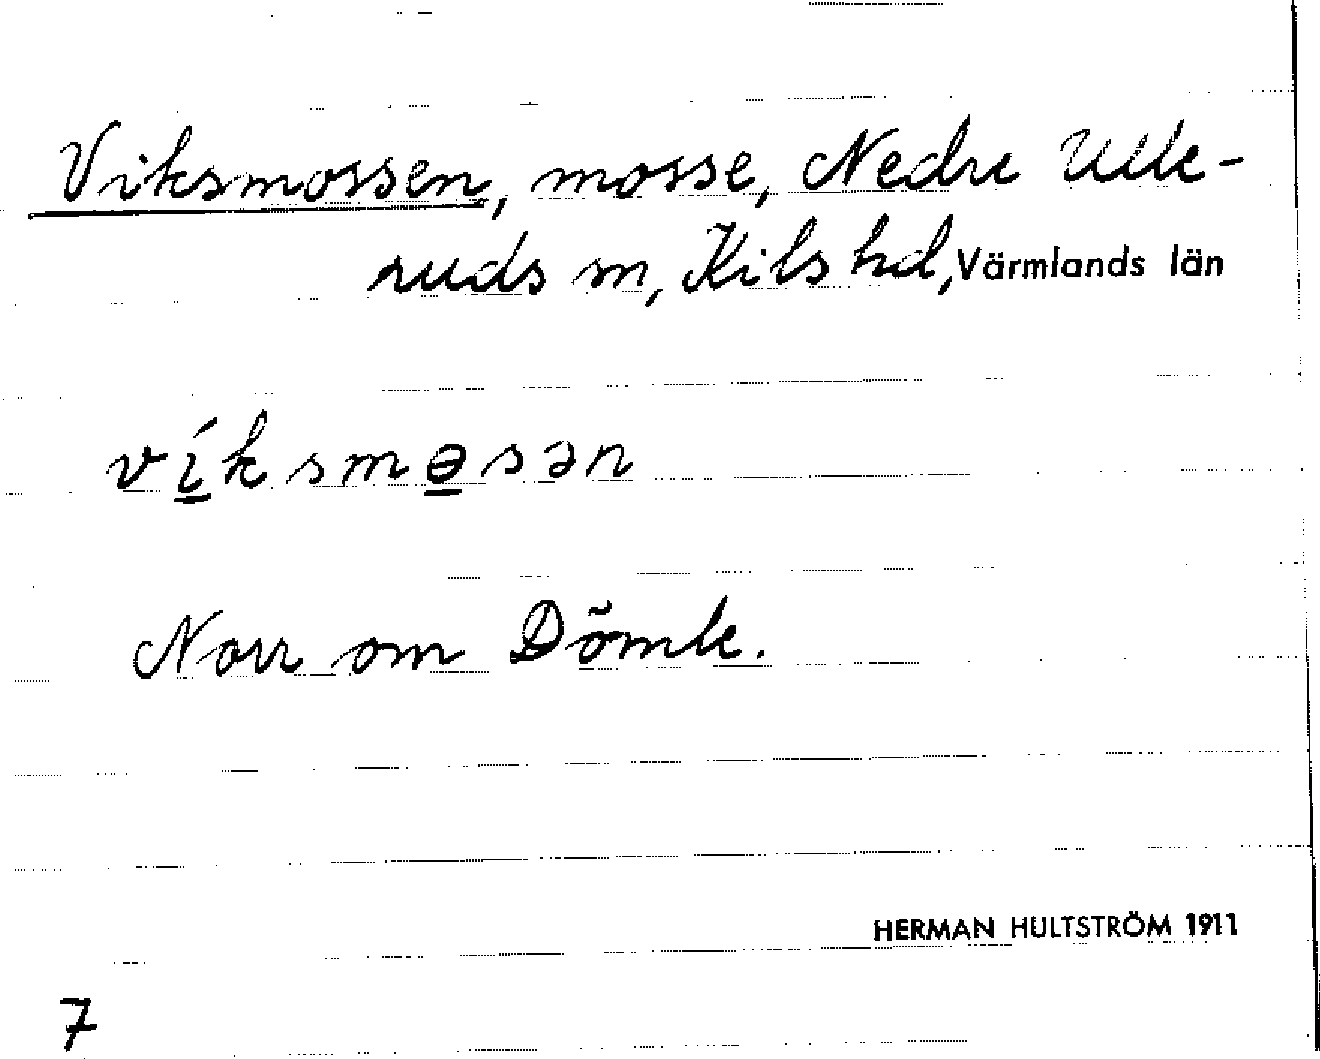 Viksmossen, mosse, Nedre Ulle-
ruds sn, Kils hd, Värmlands län
víksmɵsən
Norr om Dömle.
HERMAN HULTSTRÖM 1911
7